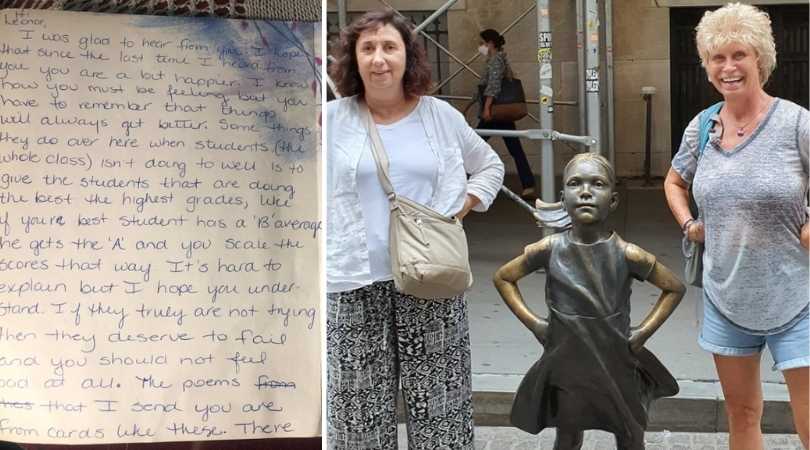 Hi
Leonor,
I was glad to hear from you. I hope
that since the last time I heard from
you you are a lot happier. I know
how you must be feeling but you
have to remember that things
will always get better. Some things
they do over here when students (the
whole class) isn't doing to well is to
give the students that are doing
the best the highest grades, like
if you're best student has a 'B' average
he gets the 'A' and you scale the
scores that way. It's hard to
explain but I hope you under-
stand. I if they truley are not trying
then they deserve to fail
and you should not feel
bad at all. The poems from
that I send you are
from cards like these. There